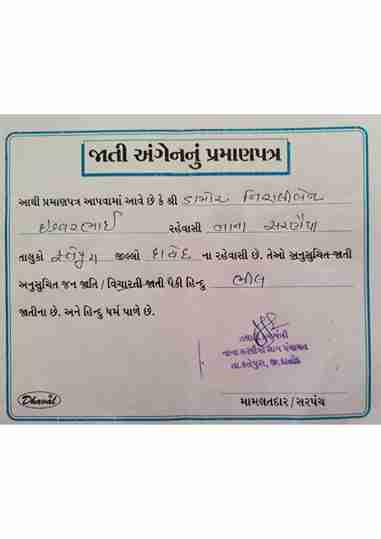 જાતી અંગેનનું પ્રમાણપત્ર
આથી પ્રમાણપત્ર આપવામાં આવે છે કે શ્રી ડામોર નિરાલીબેન
ઇશ્વરભાઈ રહેવાસી નાના સરણૈયા
તાલુકો ફતેપુરા જીલ્લો દાહોદ ના રહેવાસી છે. તેઓ અનુસુચિત જાતી
અનુસુચિત જન જાતિ / વિચારતી જાતી પૈકી હિન્દુ ભીલ
જાતીના છે. અને હિન્દુ ધર્મ પાળે છે.
તલાટી મંત્રી
નાના સરણૈયા ગ્રામ પંચાયત
તા.ફતેપુરા, જી.દાહોદ
Dhaval
મામલતદાર / સરપંચ